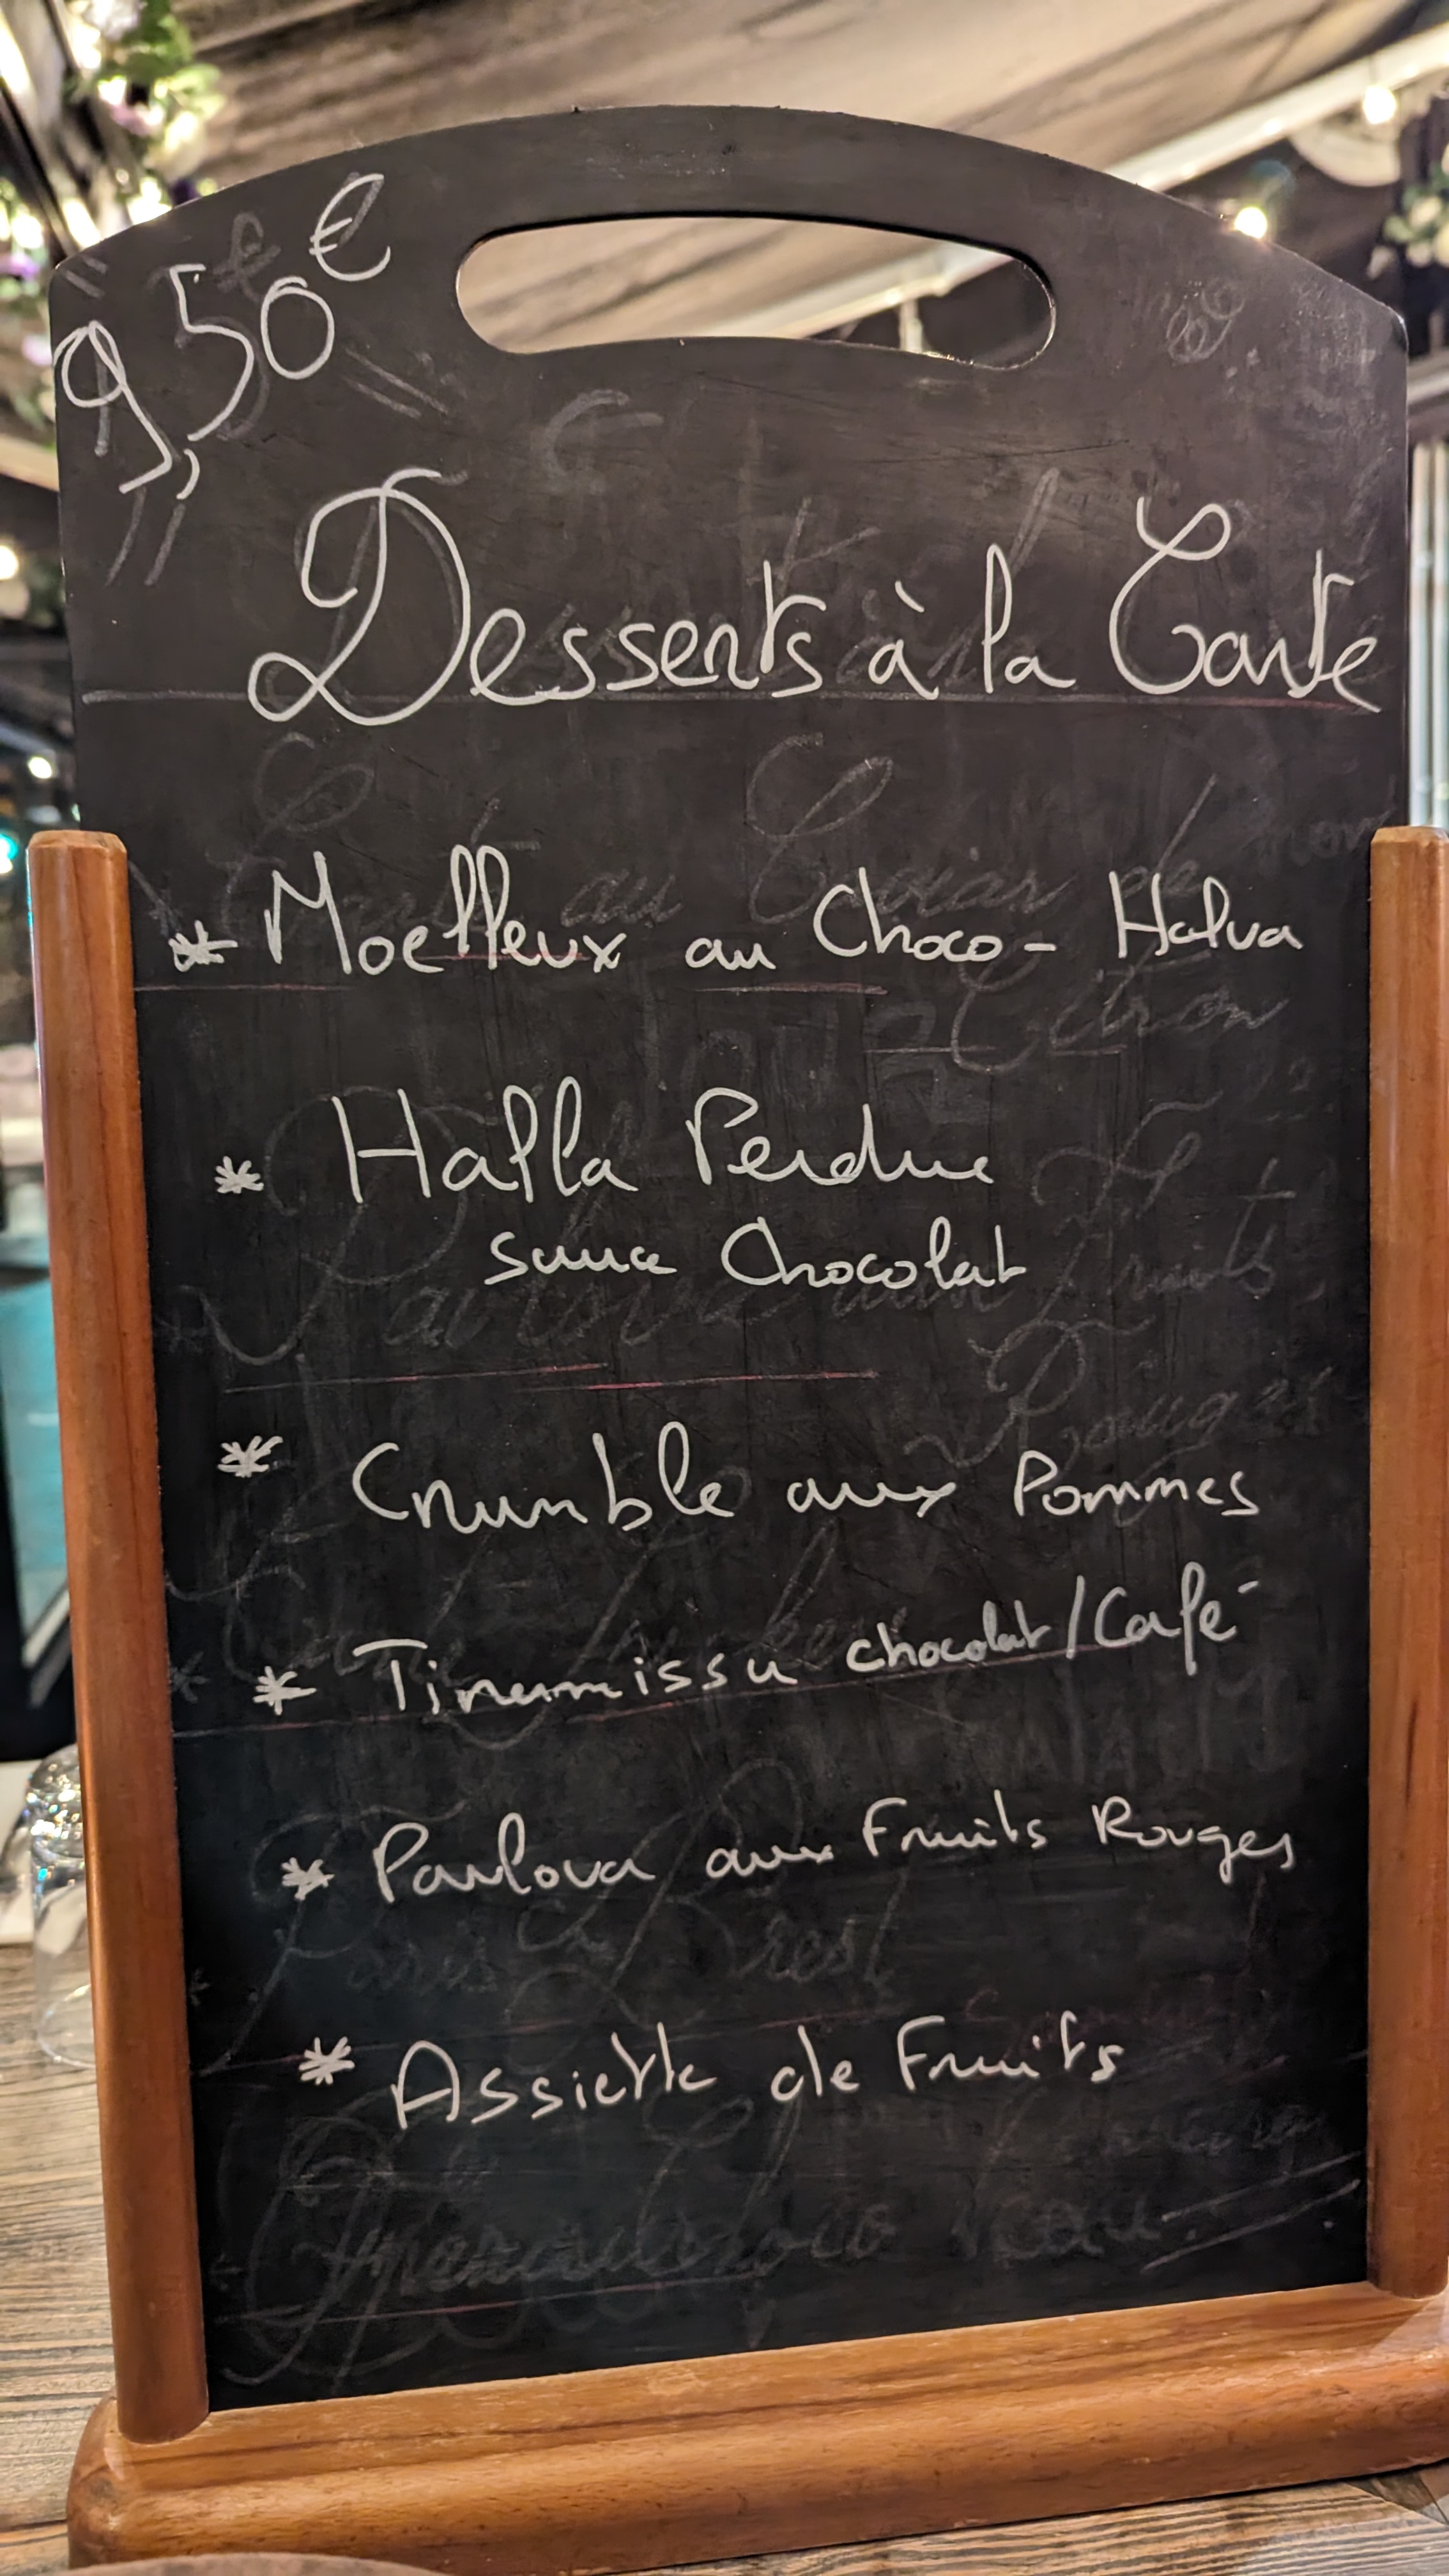 9,50€
Desserts à la Carte
* Moelleux au Choco - Halva
* Halla Perdue
sauce Chocolat
* Crumble aux Pommes
* Tiramissu chocolat/Café
* Pavlova aux Fruits Rouges
* Assiette de Fruits